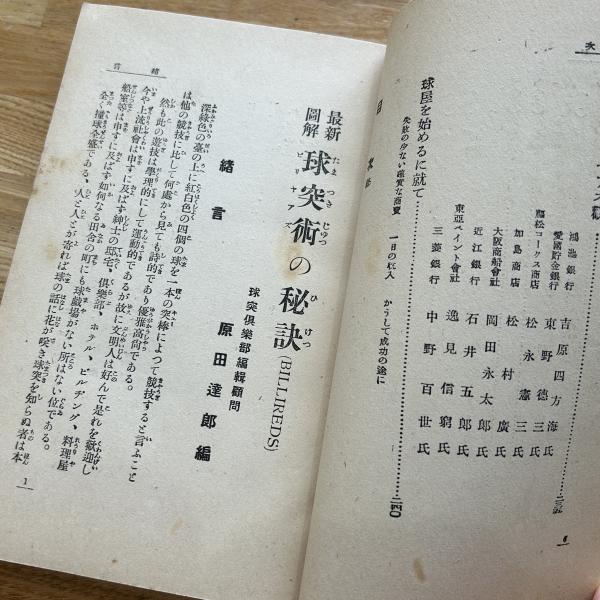 鴻池銀行 吉原四方海氏
愛國貯金銀行 東野德三氏
松永憲三氏
加島商店 松村廣氏
大阪商船會社 岡田永太郎氏
近江銀行 石井五郎氏
東亞ペイント會社 逸見信窮氏
三菱銀行 中野百世氏
球屋を始めるに就て……二四〇
失敗の少ない確實な商賣 一日の收入 かうして成功の途に
目次
6
緒言
最新圖解 球突術の秘訣(BILLIREDS)
球突倶樂部編輯顧問
原田達郎編
緒言
深綠色の臺の上に紅白色の四個の球を一本の突棒によつて競技すると言ふこと
は他の競技に比して何處から見ても詩的であり優雅高尚である。
然も此の遊技は學理的にして運動的であるが故に文明人は好んで是れを歡迎し
今や上流社會は申すに及ばず紳士の邸宅、倶樂部、ホテル、ビルヂング、料理屋
船室等は申すに及ばず如何なる田舍の町にも球戲場がない所はない位である。
全く撞球全盛である、人と人とが寄れば球の話に花が咲き球突を知らぬ者は本
1